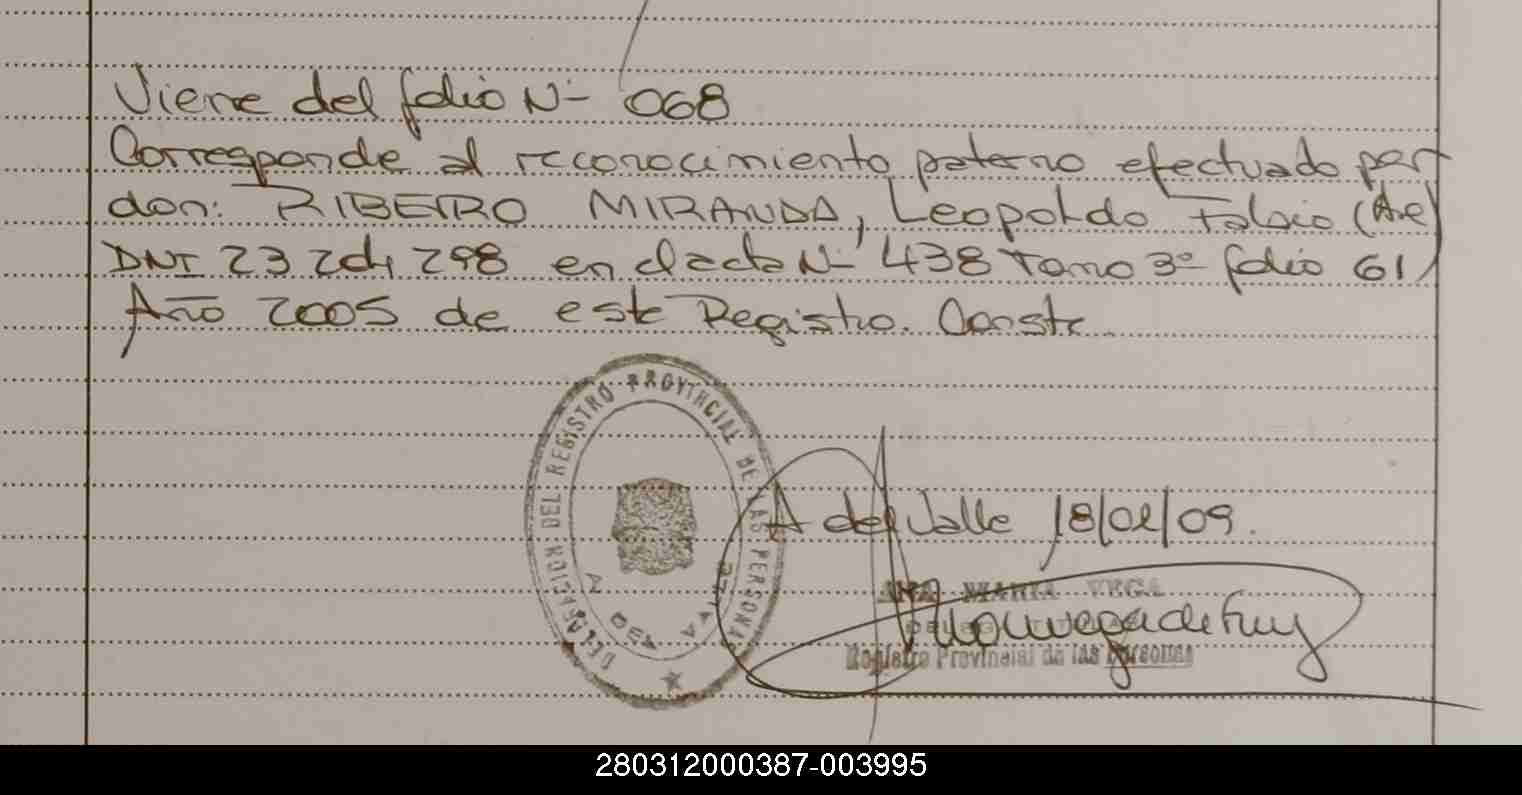 Viene del folio Nº 068
Corresponde al reconocimiento paterno efectuado por
don: RIBEIRO MIRANDA, Leopoldo Fabio (Arg)
DNI 23 201 298 en el acta Nº 438 Tomo 3º folio 61
Año 2005 de este Registro. Conste
DELEGACION DEL REGISTRO PROVINCIAL DE LAS PERSONAS
A DEL VALLE
A del Valle 18/02/09.
ANA MARIA VEGA
DELEG TITULAR
Registro Provincial de las Personas
280312000387-003995